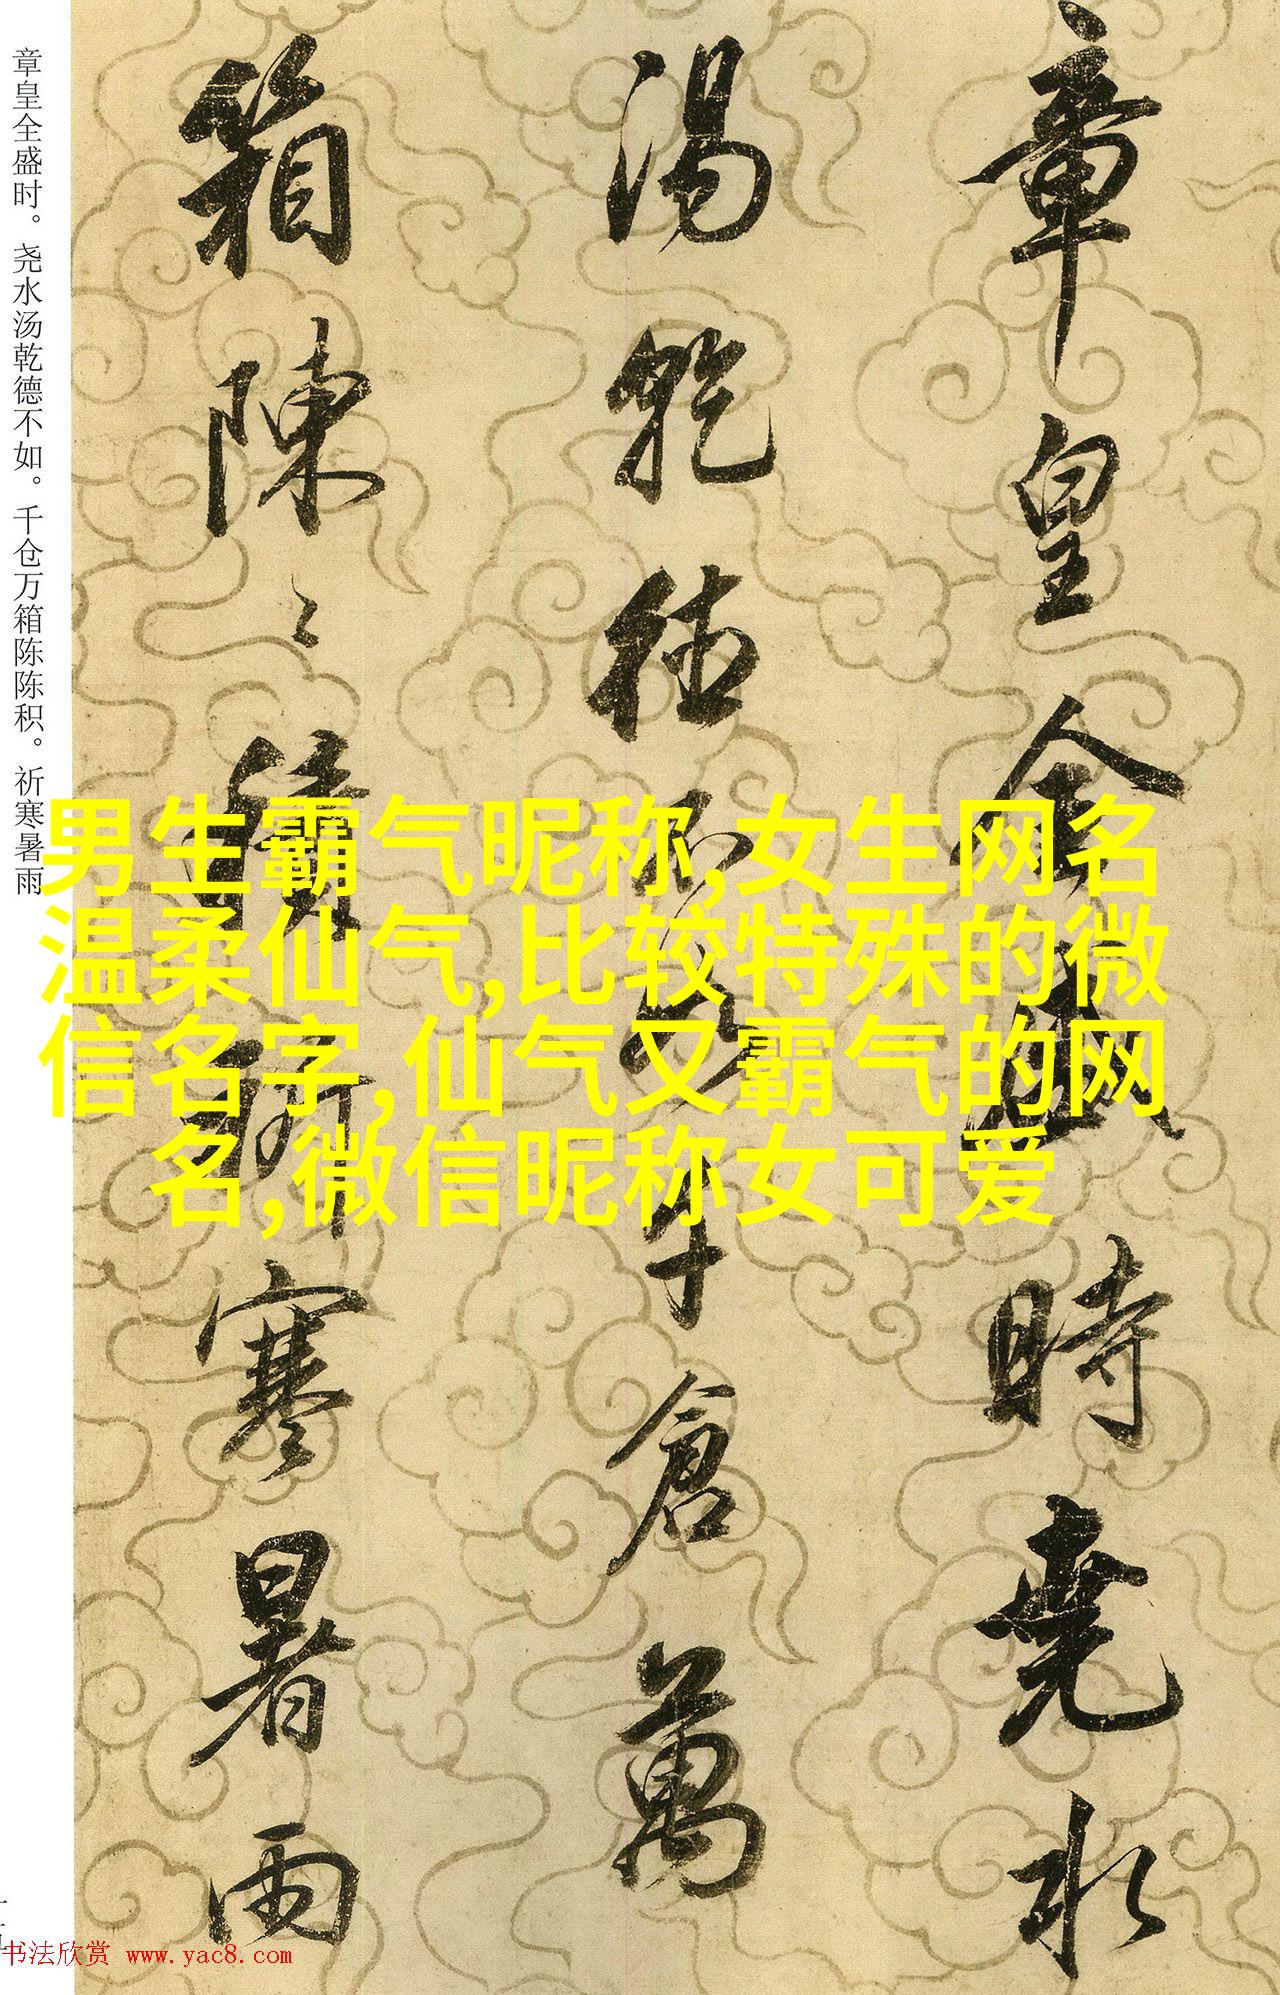 章皇全盛时。尧水汤乾德不如。千仓万箱陈陈积。祈寒暑雨
章皇全盛時堯水
湯乾德不如千倉萬
箱陳〻積祈寒暑雨
男生霸气昵称,女生网名
温柔仙气,比较特殊的微
信名字,仙气又霸气的网
名,微信昵称女可爱
书法欣赏 www.yac8.com